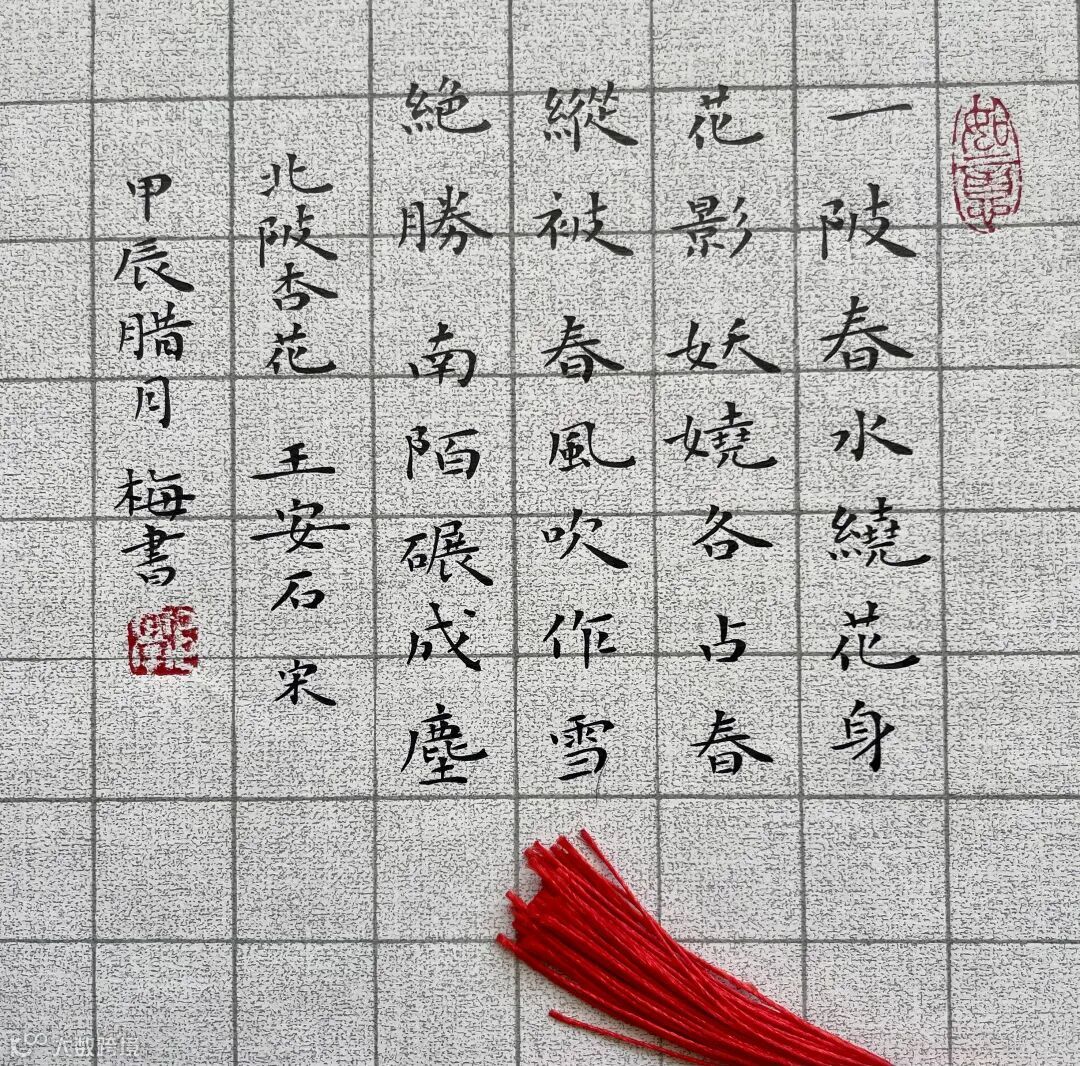 一陂春水繞花身
花影妖嬈各占春
縱被春風吹作雪
絕勝南陌碾成塵
北陂杏花 王安石 宋
甲辰腊月 梅書
大数跨境